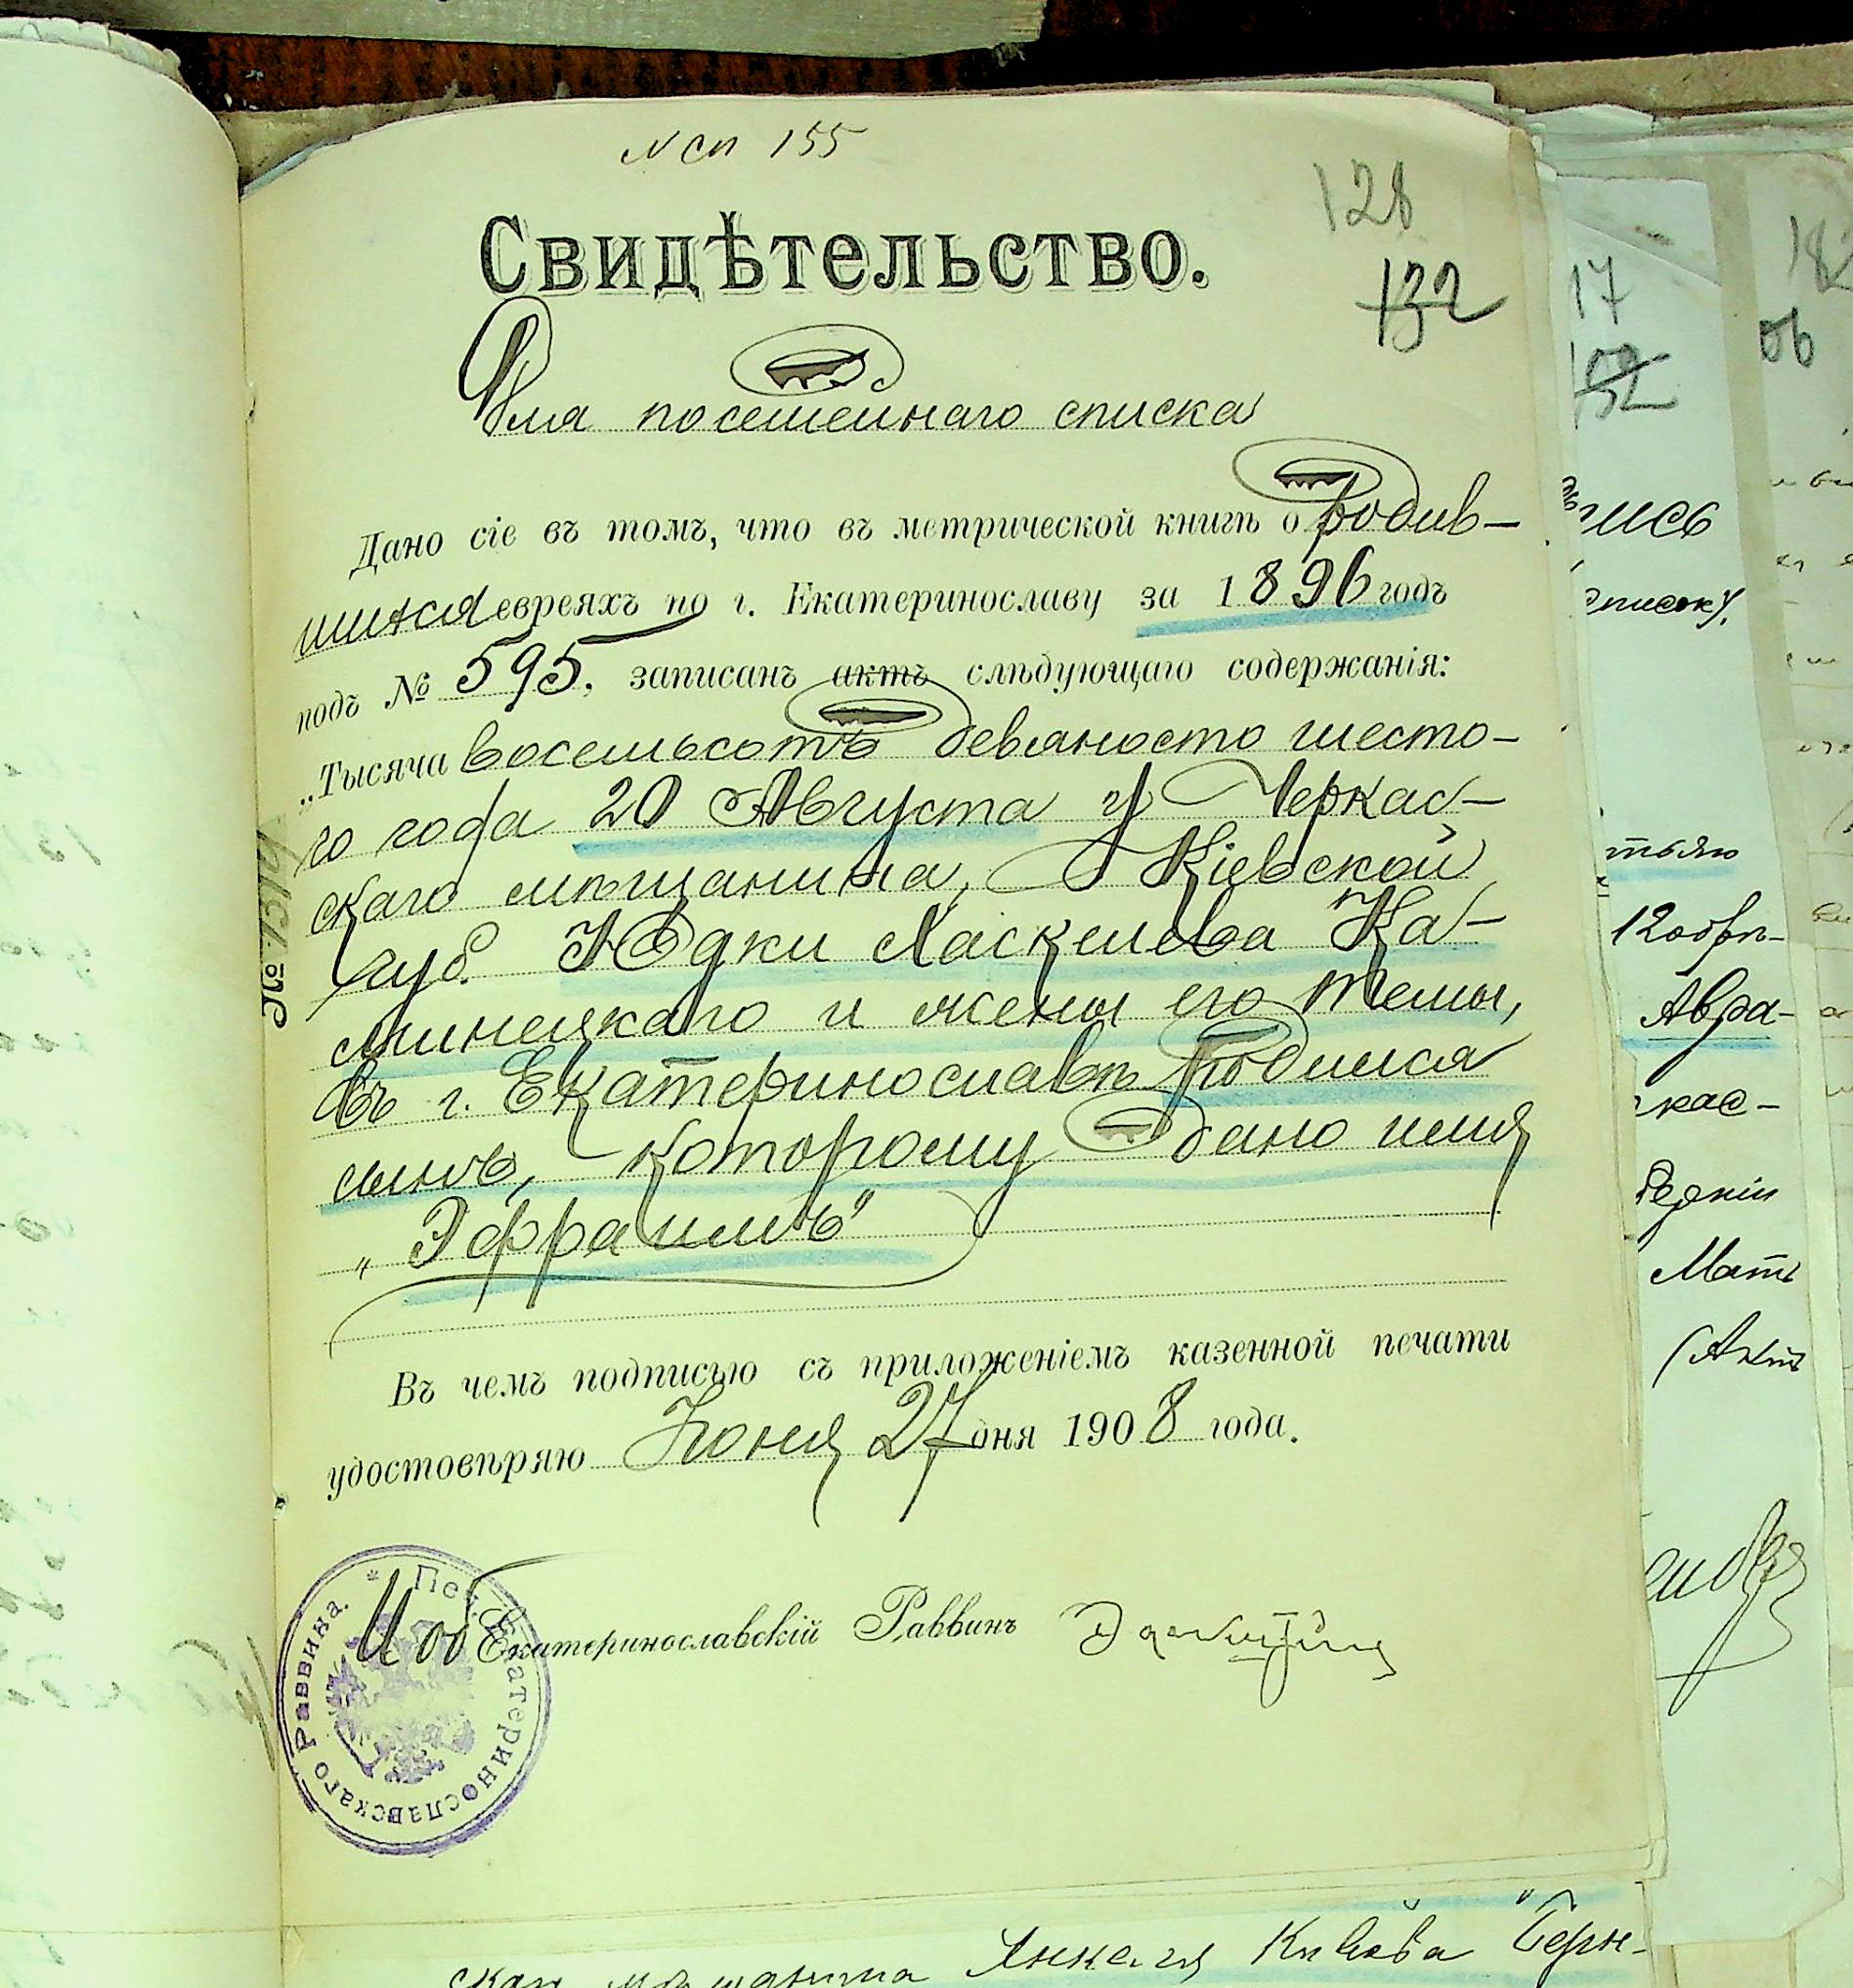 N сп 155
128
132
Свидѣтельство.
Для посемейнаго списка
Дано сіе въ томъ, что въ метрической книгѣ о родив–
шихся евреяхъ по г. Екатеринославу за 1896 годъ
подъ № 595, записанъ актъ слѣдующаго содержанія:
„Тысяча восемьсотъ девяносто шесто–
го года 20 Августа у Черкас–
скаго мѣщанина, Кіевской
губ. Юдки Хаскелева Ка–
минецкаго и жены его Темы,
въ г. Екатеринославѣ родился
сынъ, которому дано имя
„Эфраимъ"
Въ чемъ подписью съ приложеніемъ казенной печати
удостовѣряю Іюня 27 дня 1908 года.
Иоб Екатеринославскій Раввинъ
* Печ. Екатеринославскаго Раввина.
№ 1319
17
182
06
пись
списку.
тьяю
Авра–
кас–
Мать
(Актъ
скаго мѣщанина Янкеля